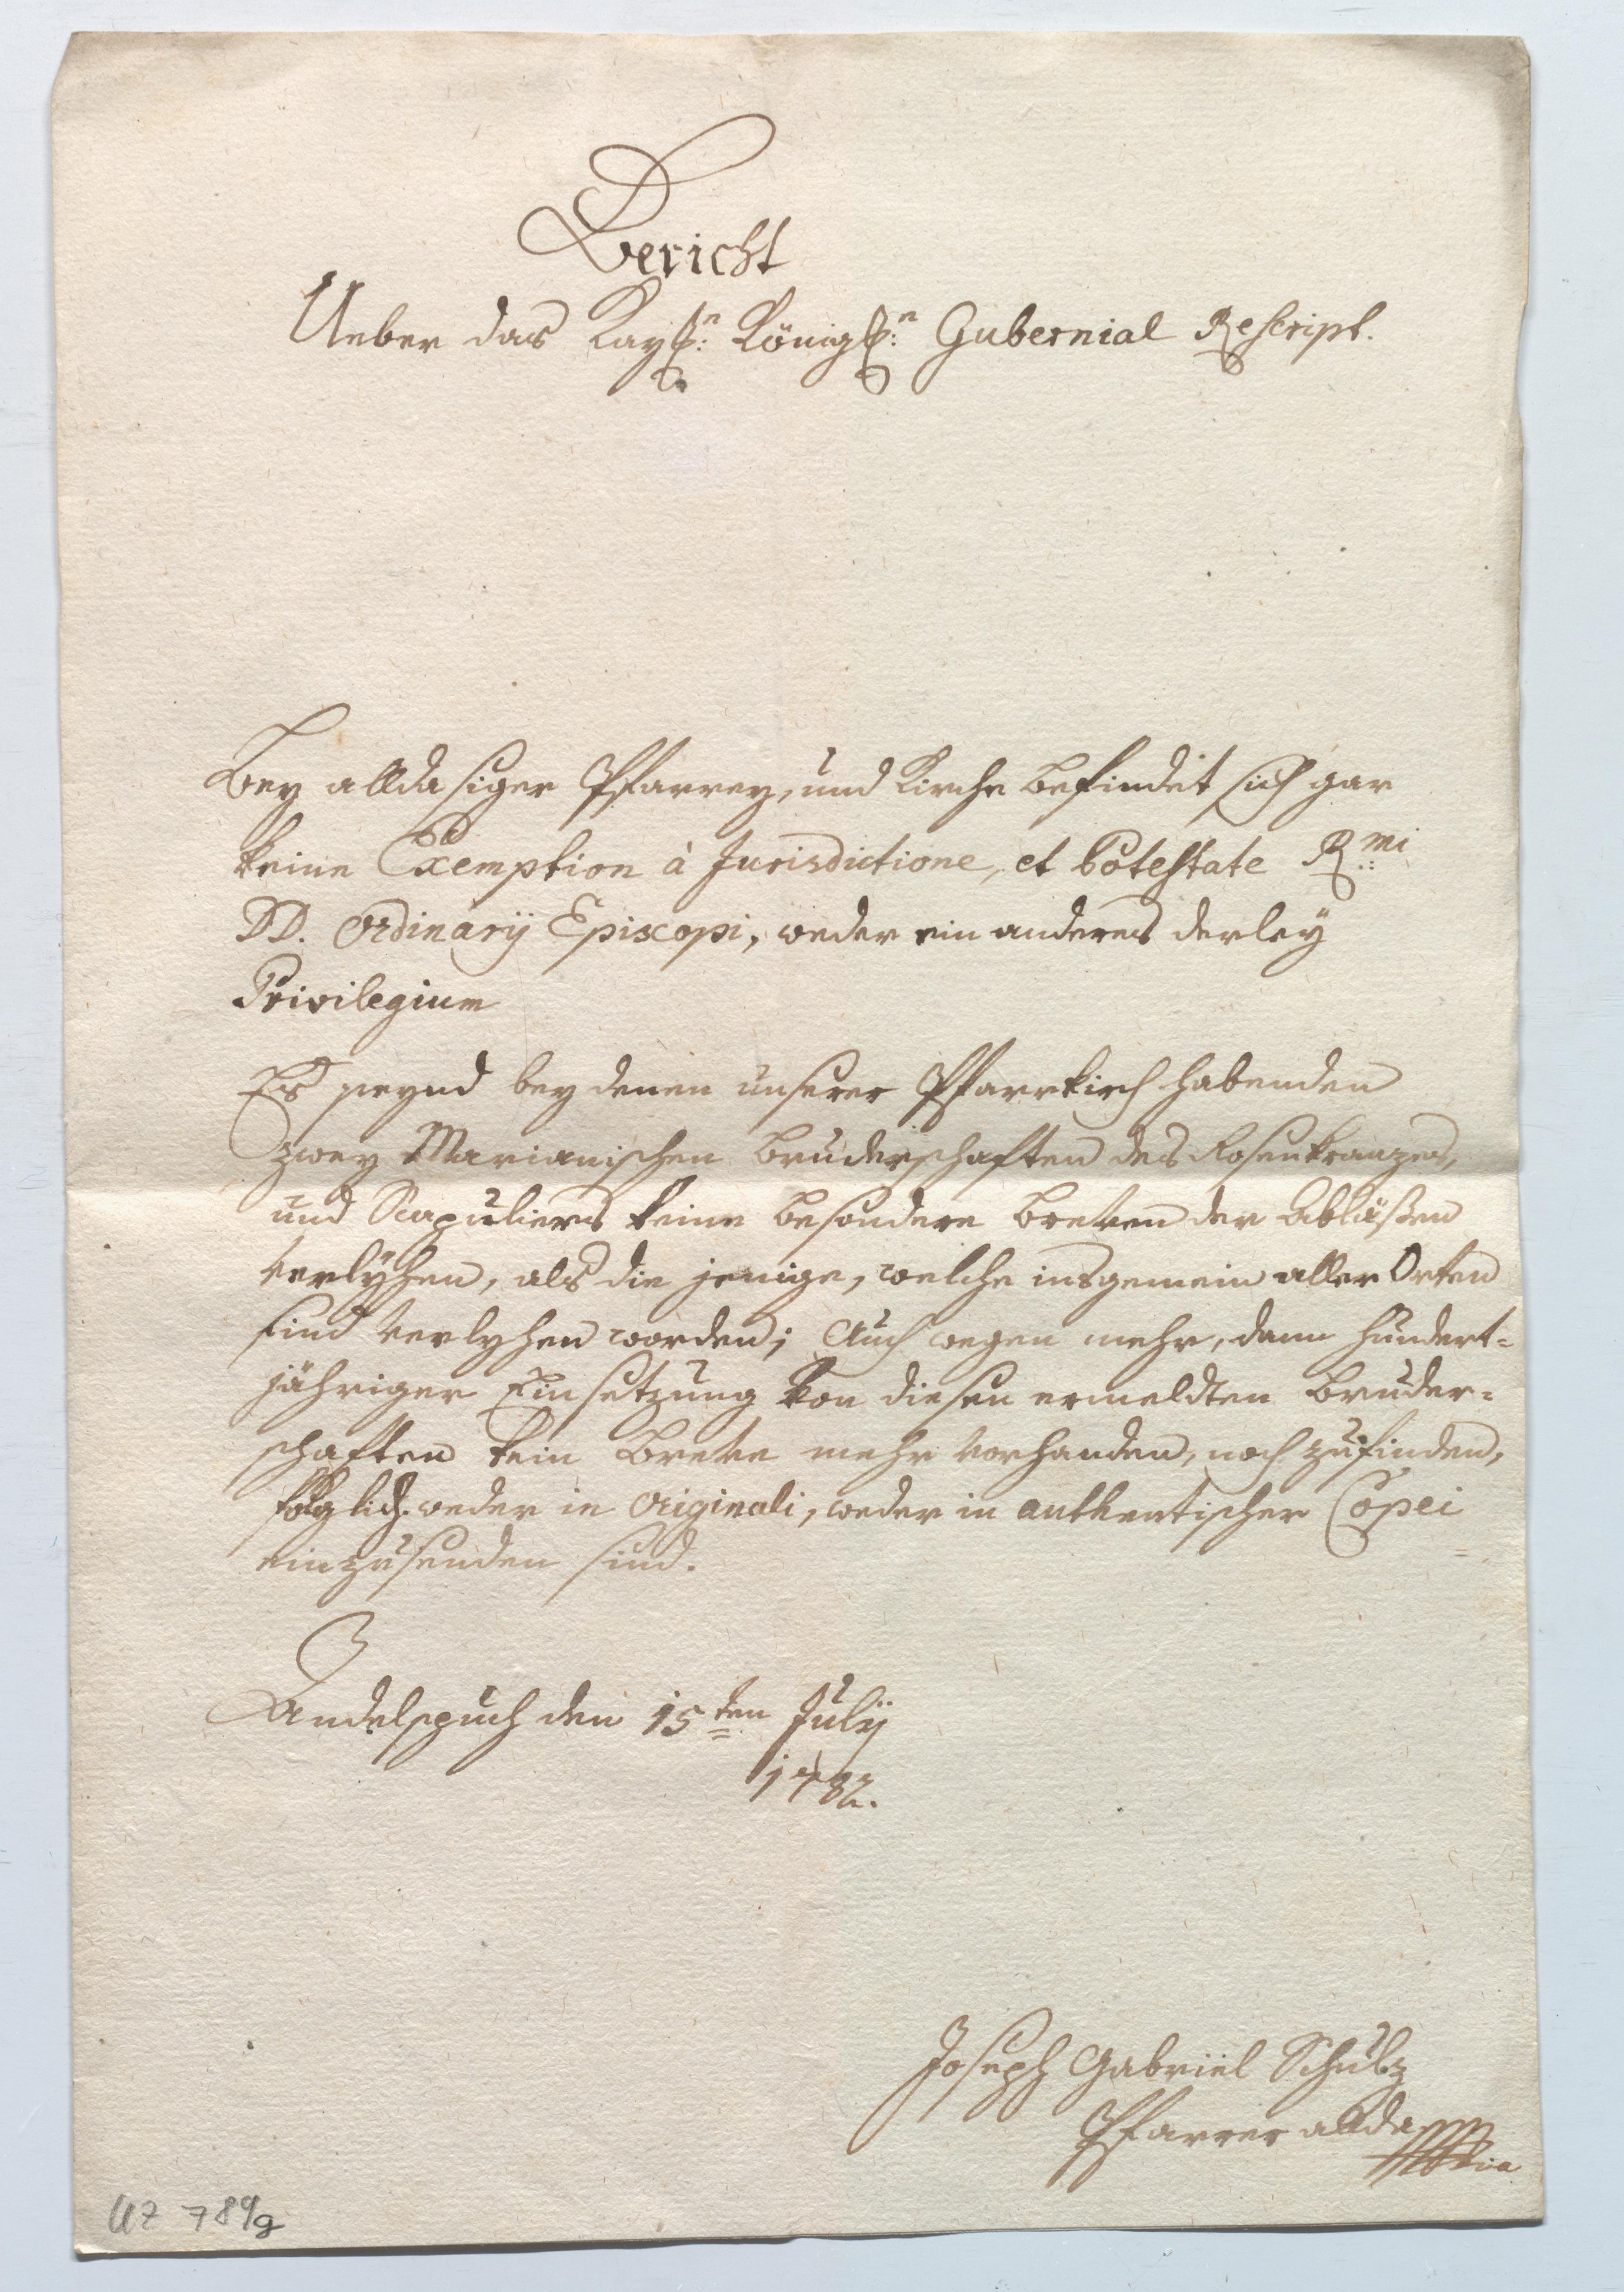 Bericht
Ueber das Kayßn: Königßn: Gubernial Rescript.
Bey allda siger Pfarrey, und Kirche befindet sich gar
keine Exemption à Jurisdictione, et Potestate R:mi
DD. Ordinarij Episcopi, weder ein anderes derley
Privilegium
Es seynd bey denen unserer Pfarrkirch habenden
zwey Marianischen Bruderschaften des Rosenkranzes,
und Scapuliers keine besondere Breven der Abläßen
verlyhen, als die jenige, welche insgemein aller Orten
sind verlyhen worden; Auch wegen mehr, dann hundert=
jähriger Einsetzung von diesen ermeldten Bruder=
schaften kein Breve mehr vorhanden, noch zufinden,
folglich weder in Originali, weder in authentischer Copei
einzusenden sind.
Andelspuch den 15ten July
1782.
Joseph Gabriel Schulz
Pfarrer allda
UZ 789/g